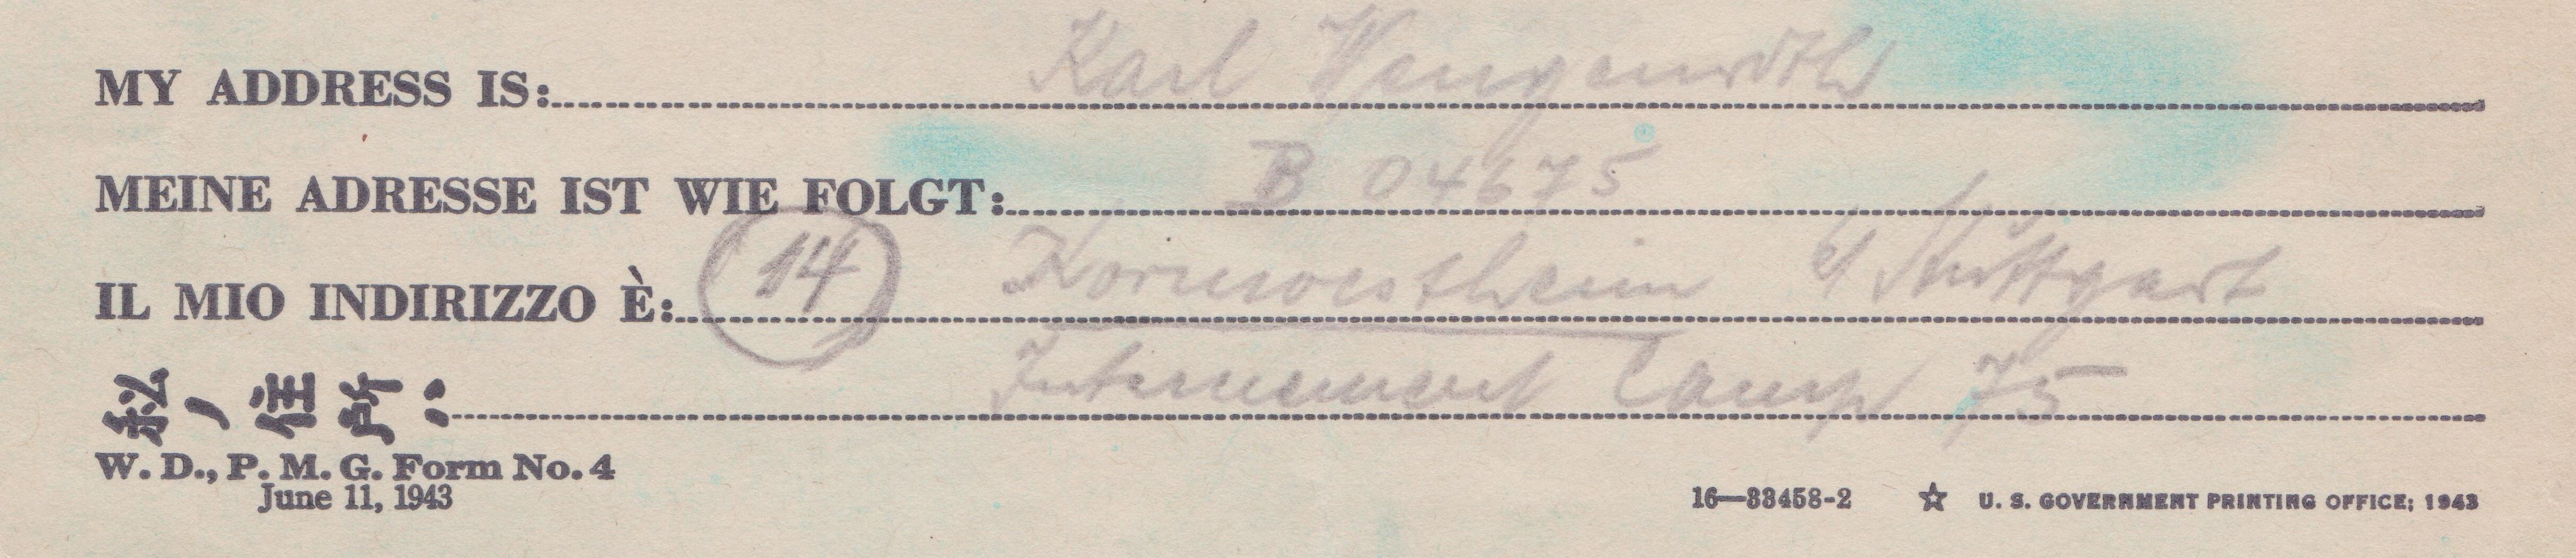 MY ADDRESS IS: Karl Wengenroth
MEINE ADRESSE IST WIE FOLGT: B 04675
IL MIO INDIRIZZO È: 14 Kornwestheim b/ Stuttgart
私ノ住所: Internement Camp 75
W. D., P. M. G. Form No. 4
June 11, 1943
16—33458-2 ☆ U. S. GOVERNMENT PRINTING OFFICE: 1943